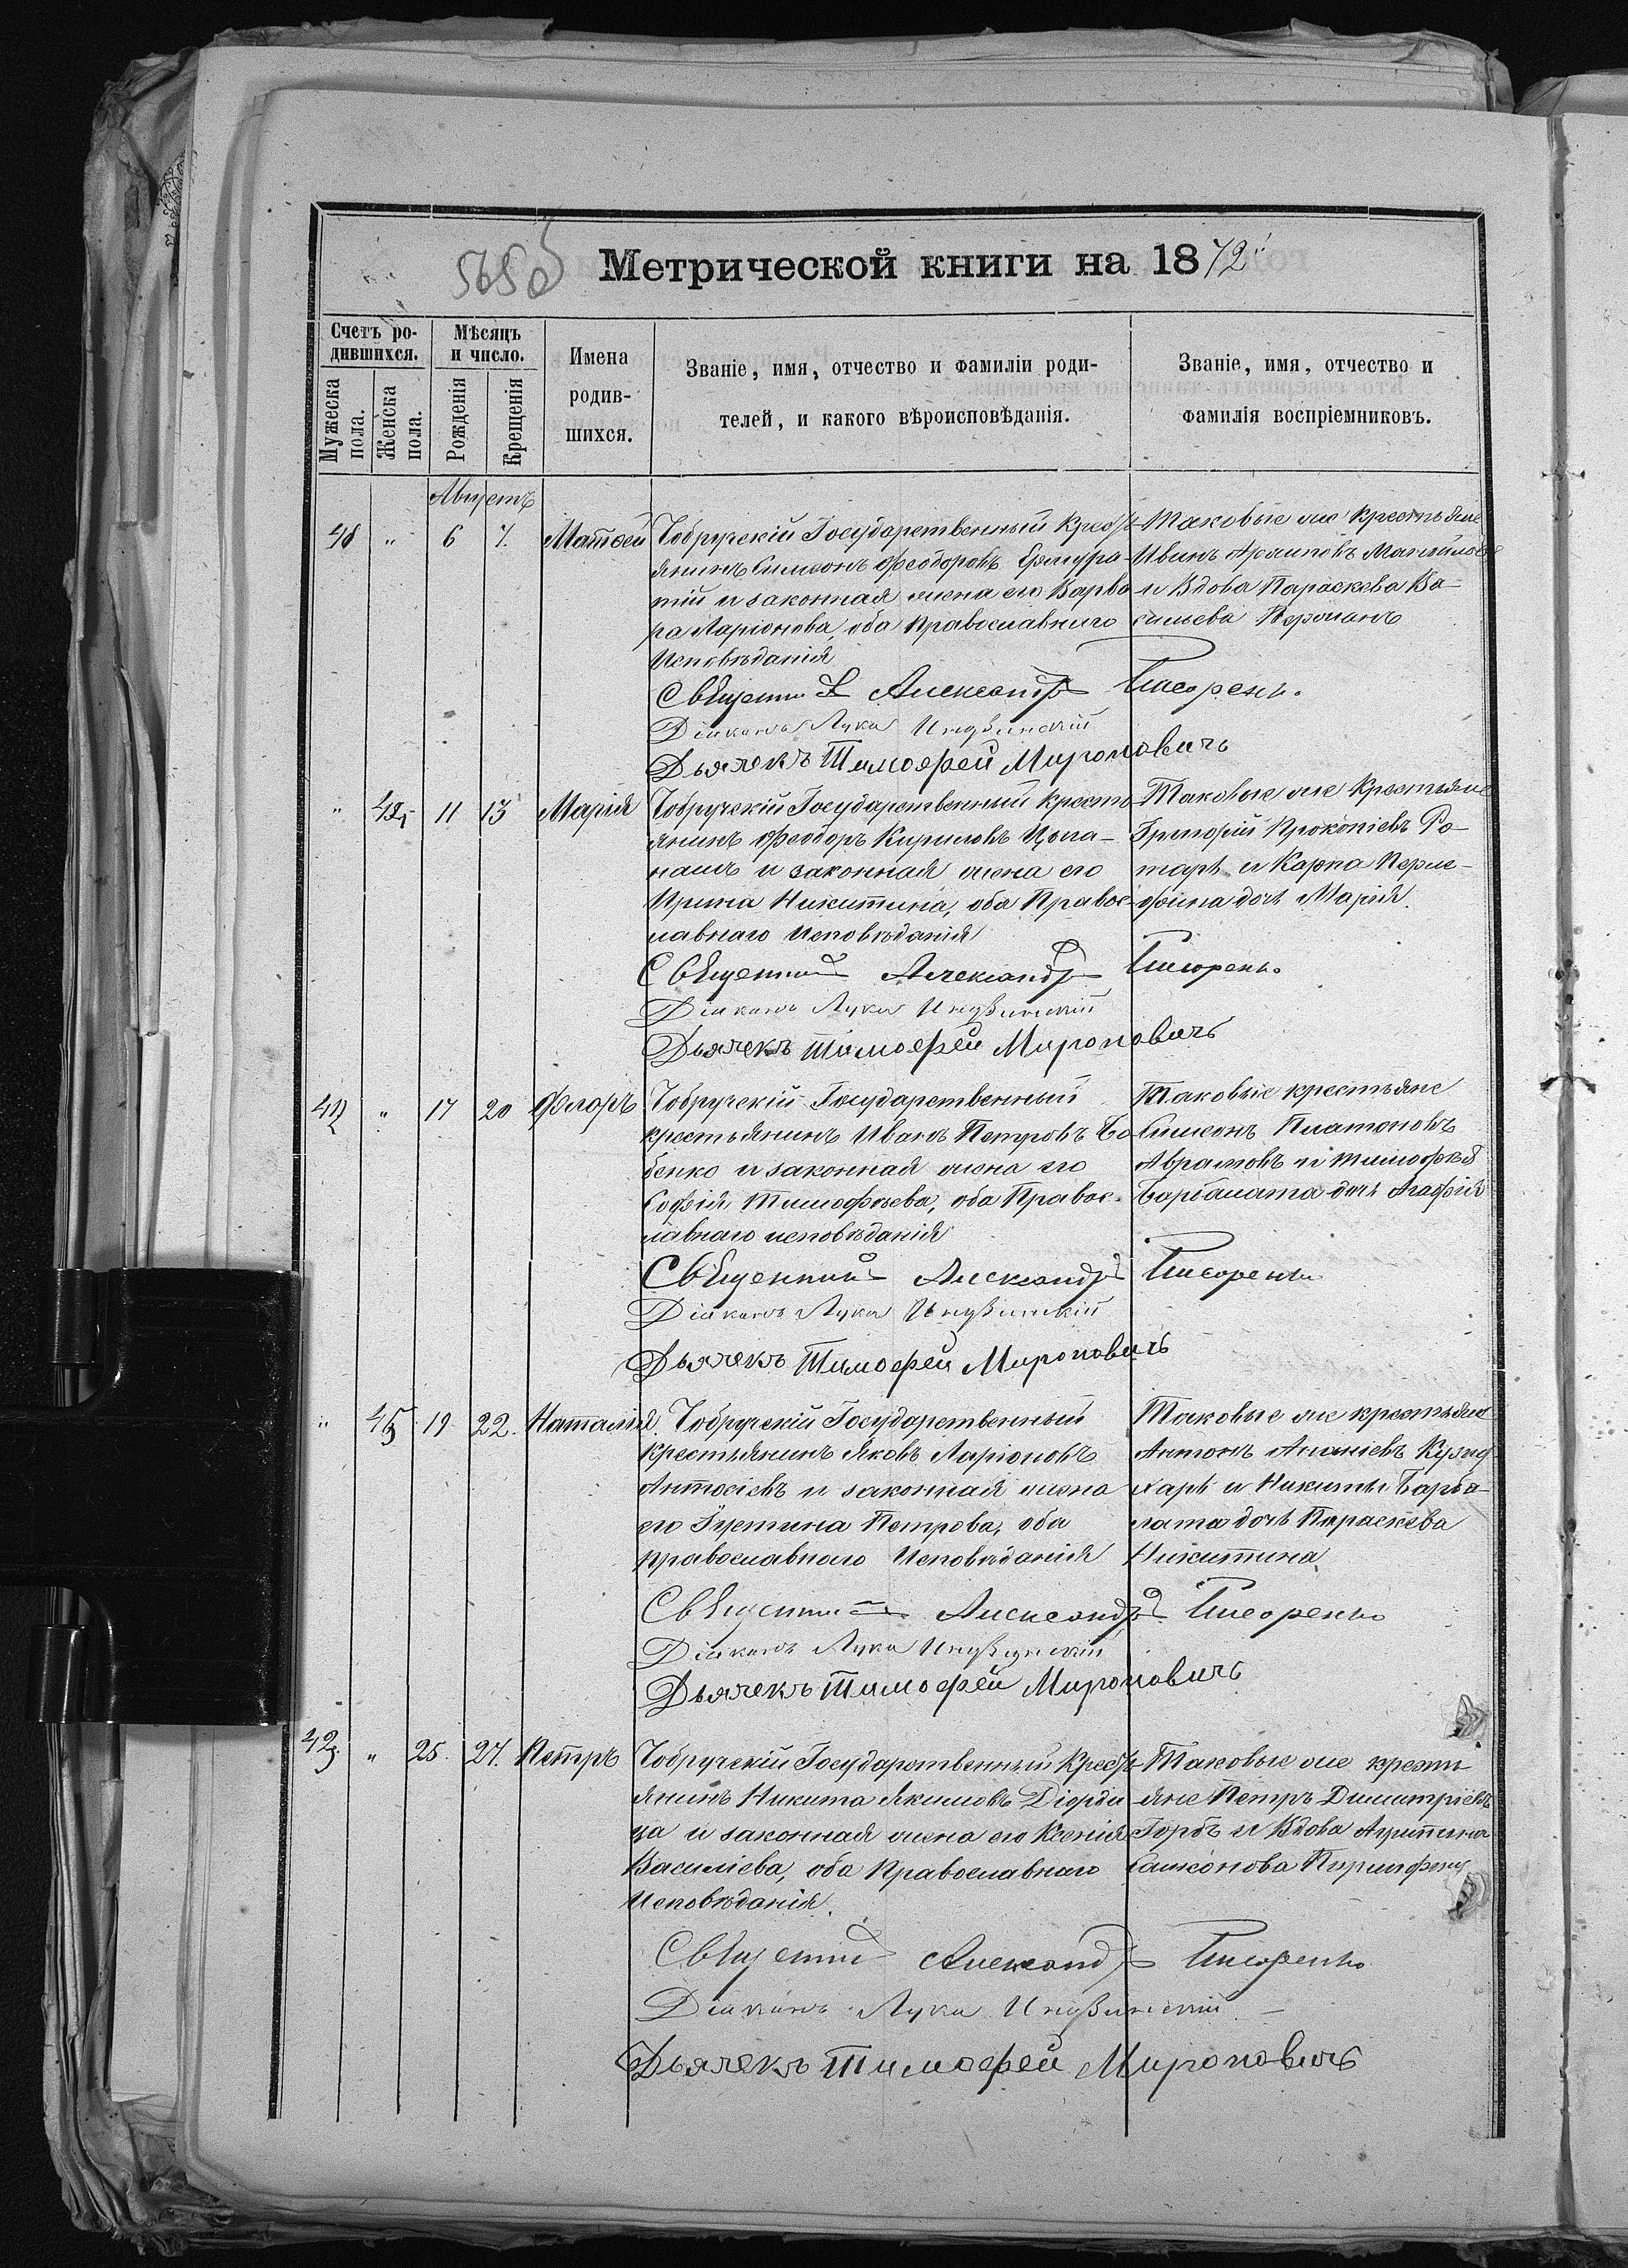 5650
Метрической книги на 1872
Счетъ ро-
дившихся.
Мѣсяцъ
и число.
Имена
родив-
шихся.
Званіе, имя, отчество и фамиліи роди-
телей, и какого вѣроисповѣданія.
Званіе, имя, отчество и
фамилія воспріемниковъ.
Мужеска
пола.
Женска
пола.
Рожденія
Крещенія
Августъ
" 6 7. Матѳей
Чобручскій Государственный Кресть-
янинъ Симеонъ Ѳеодоровъ
тій и законная жена его Варва-
ра Ларіонова, оба Православнаго
Исповѣданія
Таковые же Крестьяне
Иванъ
и Вдова Параскева Ва-
сильева
Священникъ Александръ
Діаконъ Лука
Дьячекъ Тимофей Мироновичъ
" 11 13 Марія
Чобручскій Государственный кресть-
янинъ Ѳеодоръ Кириловъ Цыга-
нашъ и законная жена его
Ирина Никитина, оба Правос-
лавнаго Исповѣданія
Таковые же Крестьяне
Григорій Прокопіевъ Ро-
тарь и Карпа
дочь Марія.
Священникъ Александръ
Діаконъ Лука
Дьячекъ Тимофей Мироновичъ
" 17 20 Флоръ
Чобручскій Государственный
крестьянинъ Иванъ Петровъ Бо-
бенко и законная жена его
Софія Тимофѣева, оба Правос-
лавнаго исповѣданія
Таковые крестьяне
Симеонъ Платоновъ
Аврамовъ и Тимофѣя
Барбалата дочь Агафія
Священникъ Александръ
Діаконъ Лука
Дьячекъ Тимофей Мироновичъ
" 45 19 22. Наталія.
Чобручскій Государственный
Крестьянинъ Яковъ Ларіоновъ
Антосіевъ и законная жена
его Іустина Петрова, оба
православнаго Исповѣданія
Таковые же крестьяне
Антонъ Ананіевъ
и Никиты Барба-
лата дочь Параскева
Никитина
Священникъ Александръ
Діаконъ Лука
Дьячекъ Тимофей Мироновичъ
" 25. 27. Петръ
Чобручскій Государственный Кресть-
янинъ Никита Якимовъ Діорди-
ца и законная жена его Ксенія
Василіева, оба Православнаго
Исповѣданія.
Таковые же кресть-
яне Петръ Димитріевъ
Горбъ и Вдова Агрипина
Священникъ Александръ
Діаконъ Лука
Дьячекъ Тимофей Мироновичъ